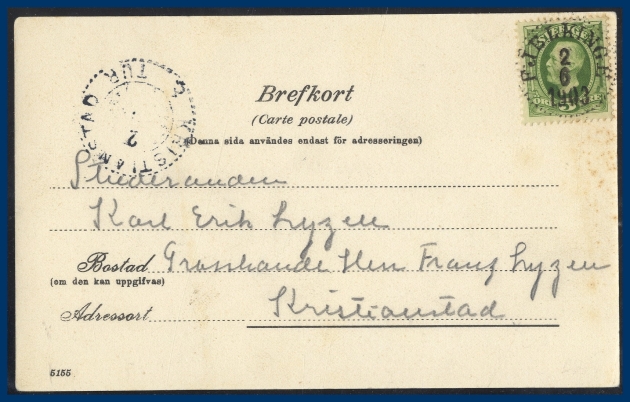 SVERIGE
FJELKINGE
2
6
1903
KRISTIANSTAD
TUR
2
Brefkort
(Carte postale)
(Denna sida användes endast för adresseringen)
Studeranden
Karl Erik Lyzell
Bostad Grosshandl. Herr Franz Lyzell
(om den kan uppgifvas)
Kristianstad
Adressort
5155